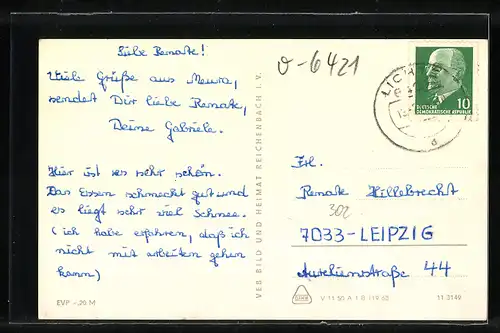 Liebe Renate!
Viele Grüße aus Meura,
sendet Dir liebe Renate,
Deine Gabriele.
Hier ist es sehr schön.
Das Essen schmeckt gut und
es liegt sehr viel Schnee.
(ich habe erfahren, daß ich
nicht mit arbeiten gehen
kann)
EVP -.20 M
VEB BILD UND HEIMAT REICHENBACH I. V.
v-6421
LICHTE
a
10
DEUTSCHE
DEMOKRATISCHE REPUBLIK
Frl.
Renate Hillebrecht
302
7033-LEIPZIG
Aurelienstraße 44
V 11 50 A 1 B 119 60
11 3149